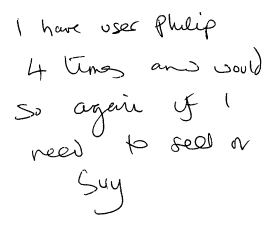 I have user Philip
4 times and would
so again if I
need to sell or
Buy